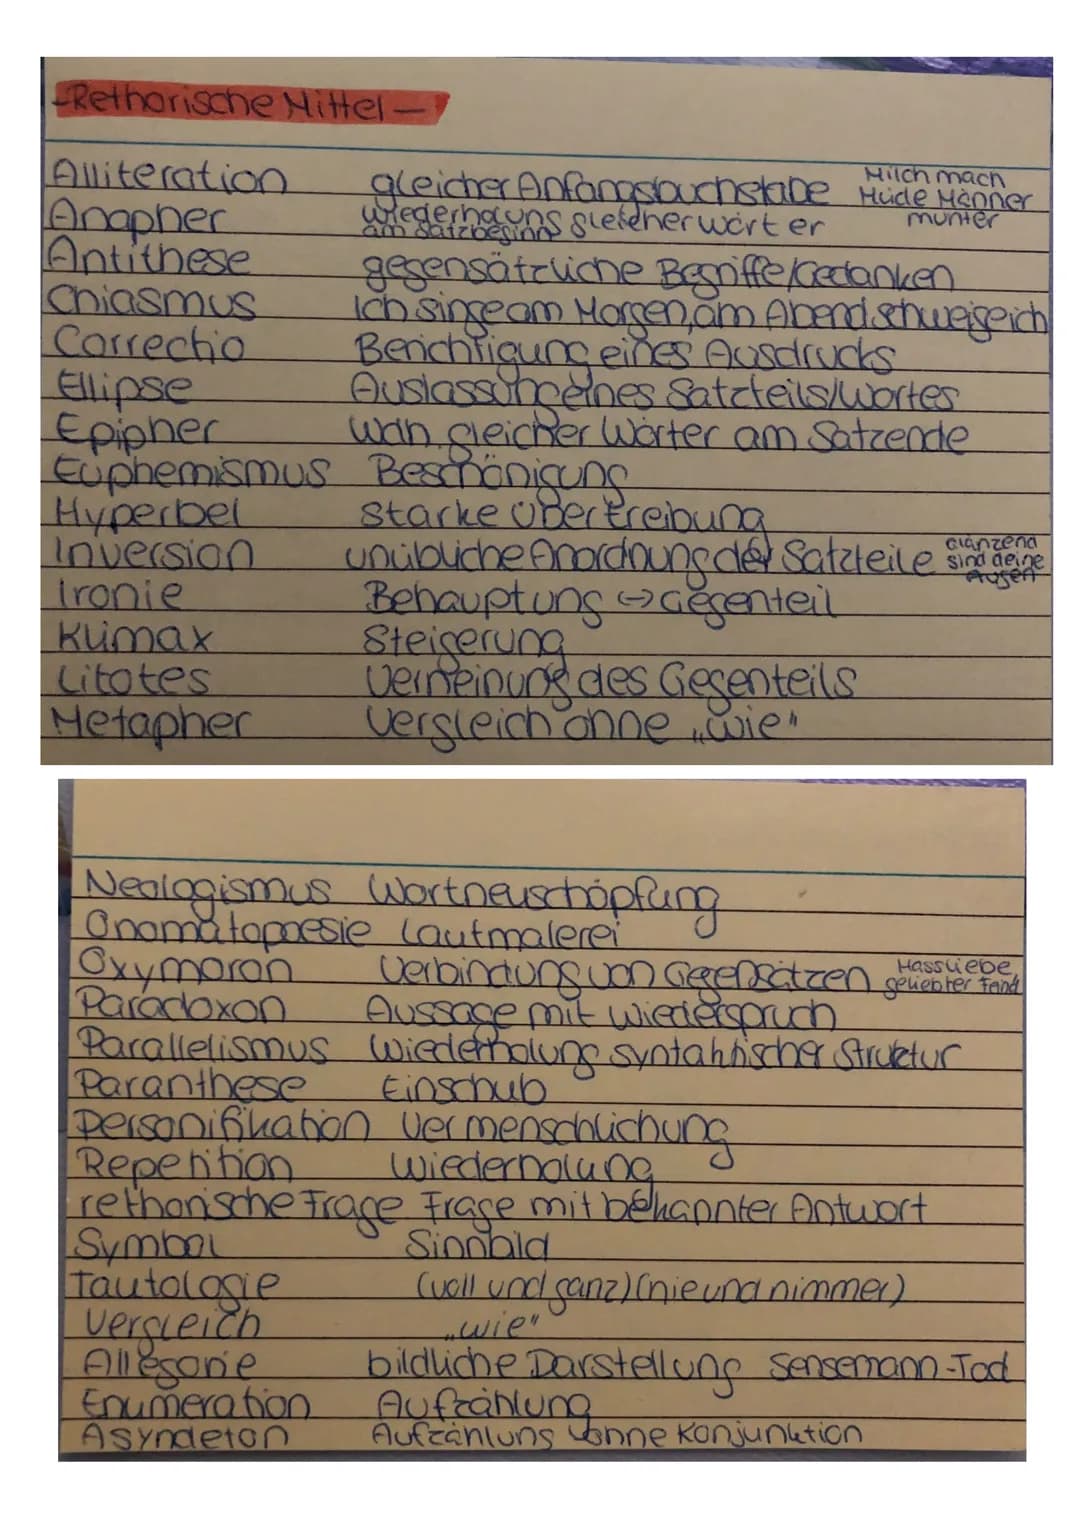 -Rethorische Mittel-
Alliteration gleicher Anfangsbuchstabe Milch mach Müde Männer munter
Anapher wiederholung gleicher wörter am Satzbeginn
Antithese gegensätzliche Begriffe/Gedanken
Chiasmus Ich singe am Morgen, am Abend schweige ich
Correctio Berichtigung eines Ausdrucks
Ellipse Auslassung eines Satzteils/Wortes
Epipher Wdh. gleicher Wörter am Satzende
Euphemismus Beschönigung
Hyperbel starke Übertreibung
Inversion unübliche Anordnung der Satzteile Glänzend sind deine Augen
Ironie Behauptung ↔ Gegenteil
Klimax Steigerung
Litotes Verneinung des Gegenteils
Metapher Vergleich ohne „wie"
Neologismus Wortneuschöpfung
Onomatopoesie Lautmalerei
Oxymoron Verbindung von Gegensätzen Hassliebe geliebter Feind
Paradoxon Aussage mit wiederspruch
Parallelismus Wiederholung syntaktischer Struktur
Paranthese Einschub
Personifikation Vermenschlichung
Repetition Wiederholung
rethorische Frage Frage mit bekannter Antwort
Symbol Sinnbild
Tautologie (voll und ganz) (nie und nimmer)
Vergleich „wie"
Allegorie bildliche Darstellung Sensemann-Tod
Enumeration Aufzählung
Asyndeton Aufzählung ohne Konjunktion